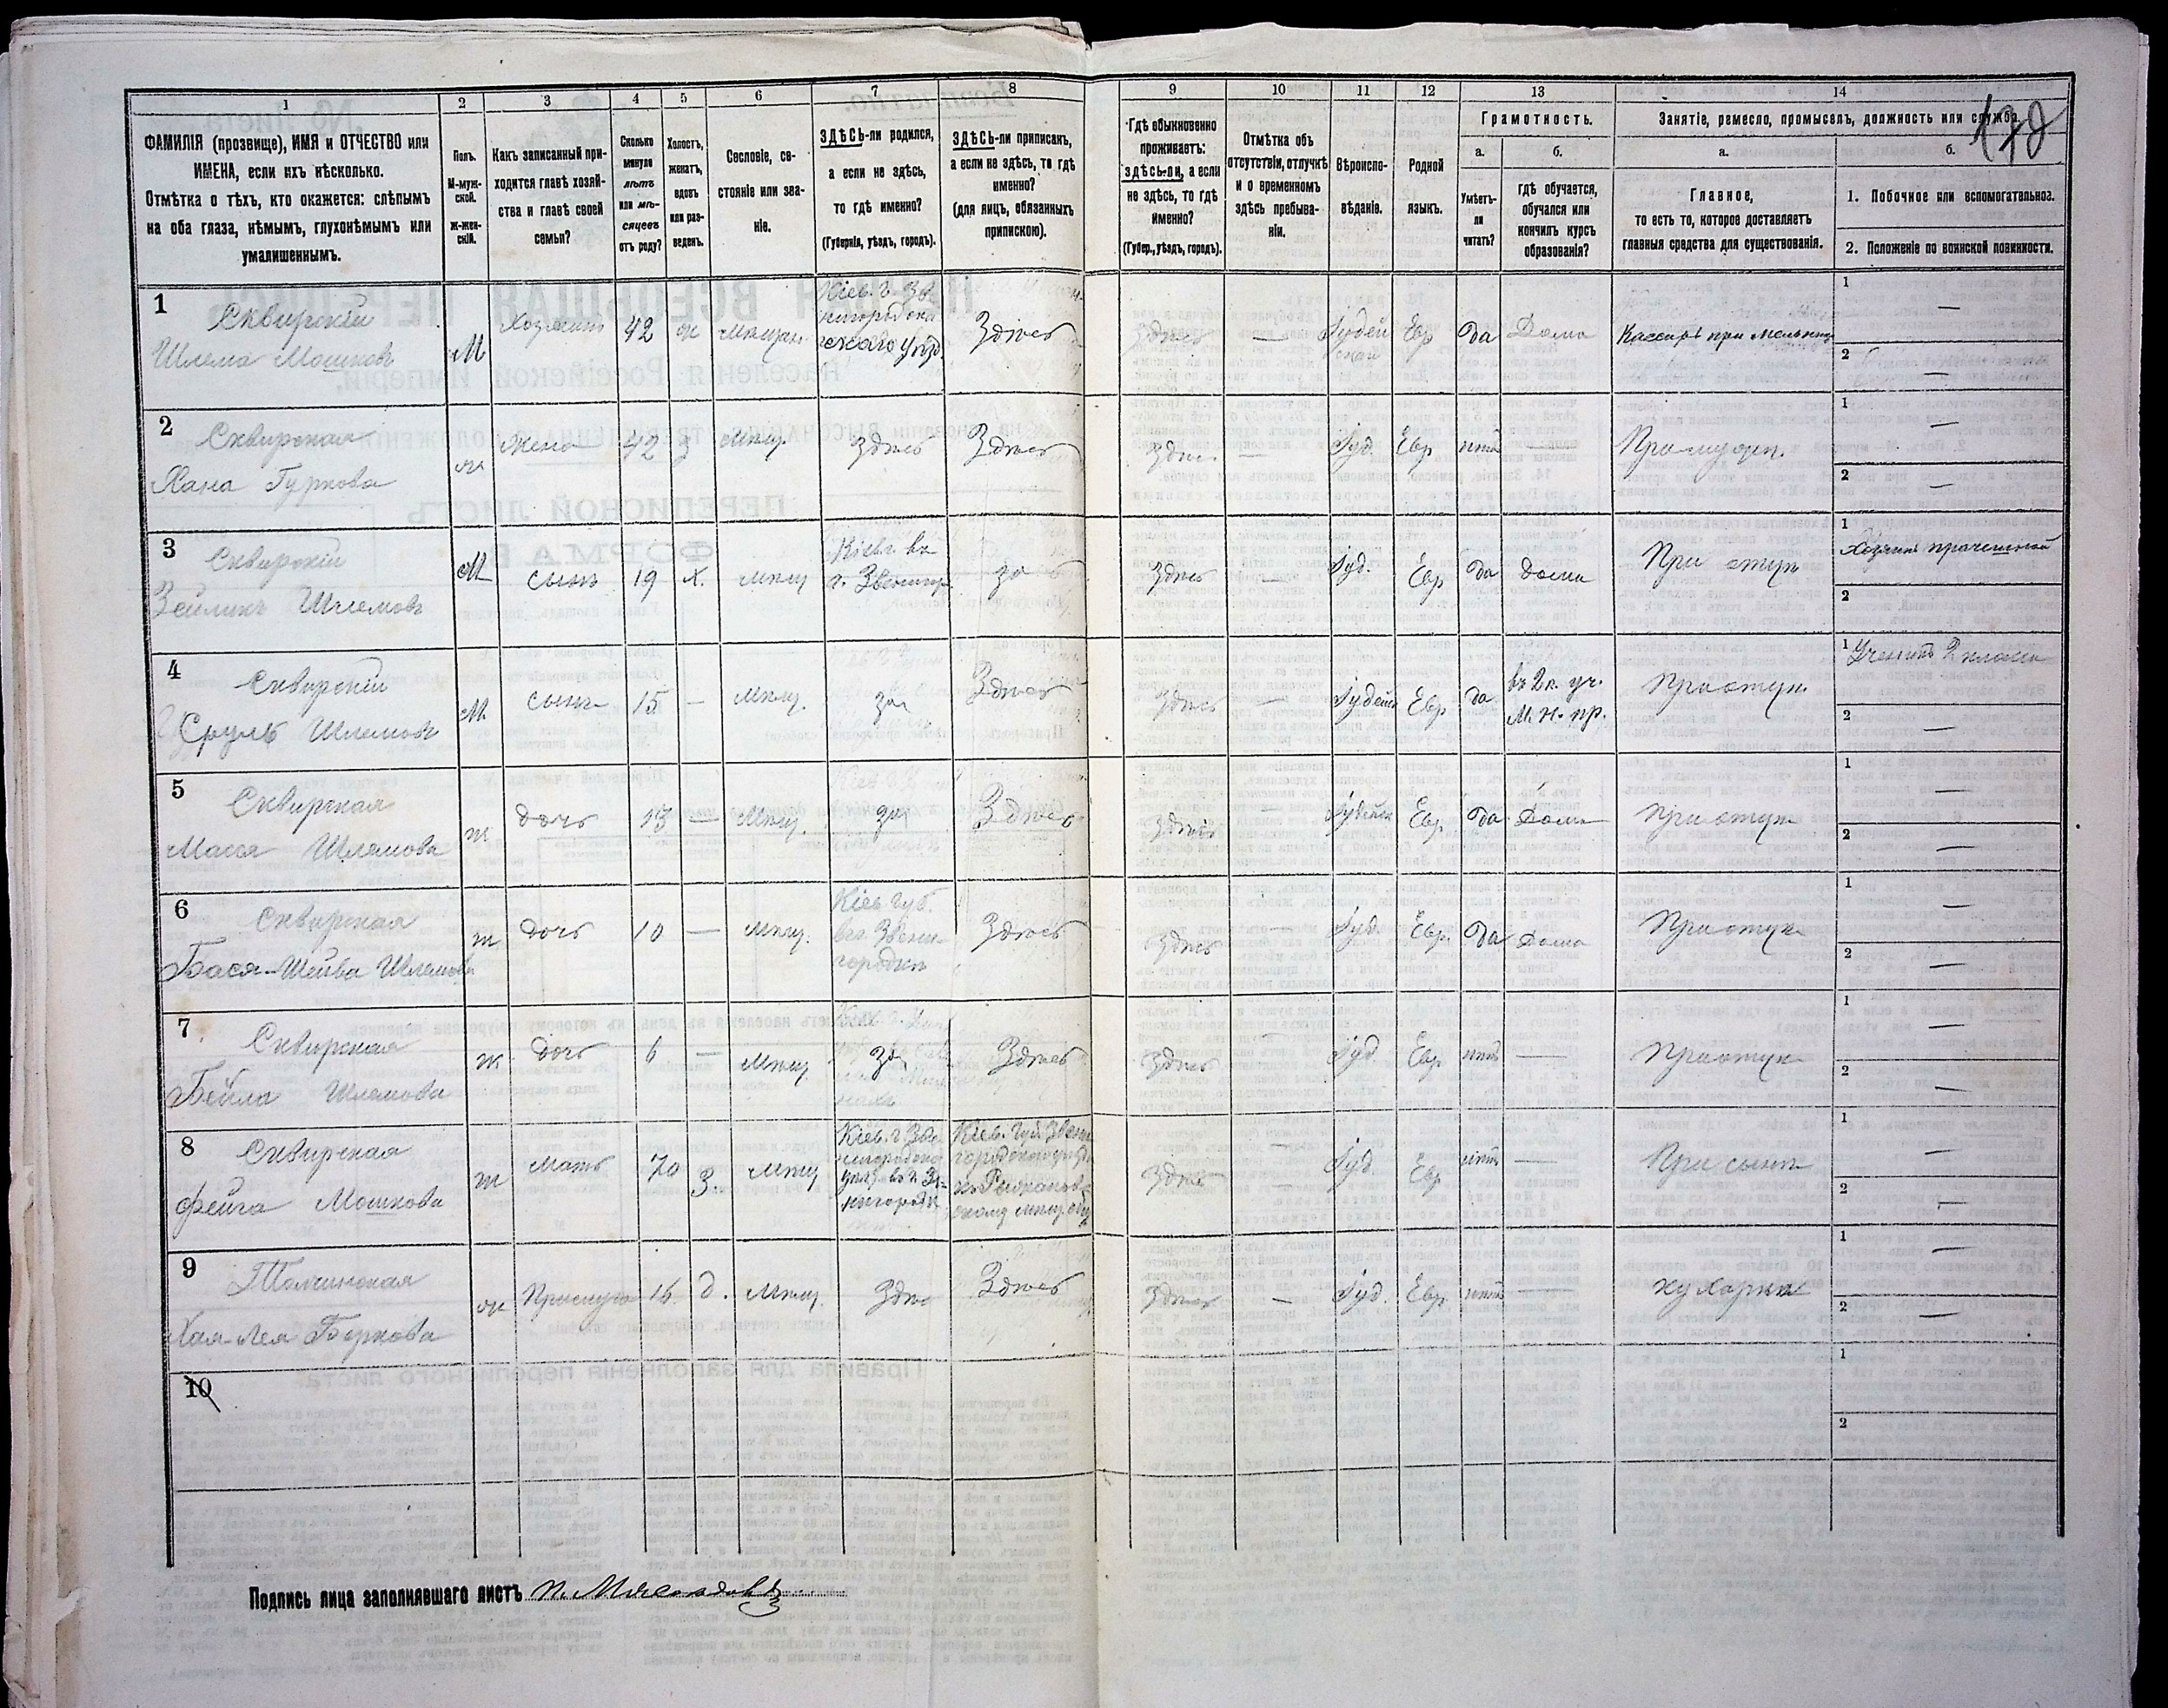 1 2 3 4 5 6 7 8 9 10 11 12 13 14
178
ФАМИЛІЯ (прозвище), ИМЯ и ОТЧЕСТВО или
ИМЕНА, если ихъ нѣсколько.
Отмѣтка о тѣхъ, кто окажется: слѣпымъ
на оба глаза, нѣмымъ, глухонѣмымъ или
умалишеннымъ.
Полъ.
М-муж-
ской.
Ж-жен-
скій.
Какъ записанный при-
ходится главѣ хозяй-
ства и главѣ своей
семьи?
Сколько
минуло
лѣтъ
или мѣ-
сяцевъ
отъ роду?
Холостъ,
женатъ,
вдовъ
или раз-
веденъ.
Сословіе, со-
стояніе или зва-
ніе.
ЗДѢСЬ-ли родился,
а если не здѣсь,
то гдѣ именно?
(Губернія, уѣздъ, городъ).
ЗДѢСЬ-ли приписанъ,
а если не здѣсь, то гдѣ
именно?
(для лицъ, обязанныхъ
припискою).
Гдѣ обыкновенно
проживаетъ:
здѣсь-ли, а если
не здѣсь, то гдѣ
именно?
(Губер., уѣздъ, городъ).
Отмѣтка объ
отсутствіи, отлучкѣ
и о временномъ
здѣсь пребыва-
ніи.
Вѣроиспо-
вѣданіе.
Родной
языкъ.
Грамотность.
а.
Умѣетъ-
ли
читать?
б.
гдѣ обучается,
обучался или
кончилъ курсъ
образованія?
Занятіе, ремесло, промыселъ, должность или служба.
а.
Главное,
то есть то, которое доставляетъ
главныя средства для существованія.
б.
1. Побочное или вспомогательное.
2. Положеніе по воинской повинности.
1 Сквирскій
Шлема Мошковъ
М Хозяинъ 42 ж мѣщан.
Кіев. г. Зве
нигородска
скаго уѣзд.
Здѣсь здѣсь — Іудей
ский Евр да Дома Кассиръ при мельницѣ
1 —
2 —
2 Сквирская
Хана Гуркова
ж Жена 42 з мѣщ. Здѣсь Здѣсь здѣс. — Іуд. Евр нѣтъ — При мужѣ.
1 —
2 —
3 Сквирскій
Зейликъ Шлемовъ
М сынъ 19 х. мѣщ
г. Звениг
зд здѣсь — Іуд. Евр да дома При отцѣ
1 Хозяинъ
2
4 Сквирскій
Сруль Шлемовъ
М сынъ 15 — мѣщ. зд Здѣсь здѣсь — Іудейск Евр да
въ 2 к. уч.
М. н. пр.
При отцѣ.
1 Ученикъ 2 класса
2 —
5 Сквирская
Мася Шлемова
ж дочь 13 — мѣщ. зд Здѣсь здѣсь — Іудейск Евр. да Дома При отцѣ
1 —
2 —
6 Сквирская
Бася-Шейва Шлемова
ж дочь 10 — мѣщ.
Кіев губ.
въ г. Звени-
городкѣ
Здѣсь здѣсь — Іуд. Евр. да Дома При отцѣ
1 —
2 —
7 Сквирская
Бейла Шлемова
ж дочь 6 — мѣщ. зд Здѣсь здѣсь — Іуд Евр нѣтъ — При отцѣ
1 —
2 —
8 Сквирская
Фейга Мошкова
ж мать 70 з. мѣщ
Кіев. г. Зве
нигородско
уѣз. въ г. Зве-
нигородк
Кіев. Губ. Звени
городского уѣзда
къ Рыжановс
скому мѣщ. общ
здѣсь — Іуд. Евр нѣтъ — При сынѣ
1 —
2 —
9 Толчинская
Хая-Лея Беркова
ж Прислуга 16 д. мѣщ. Здѣс Здѣсь здѣсь — Іуд. Евр нѣтъ — кухарка
1 —
2 —
10
1
2
Подпись лица заполнявшаго листъ